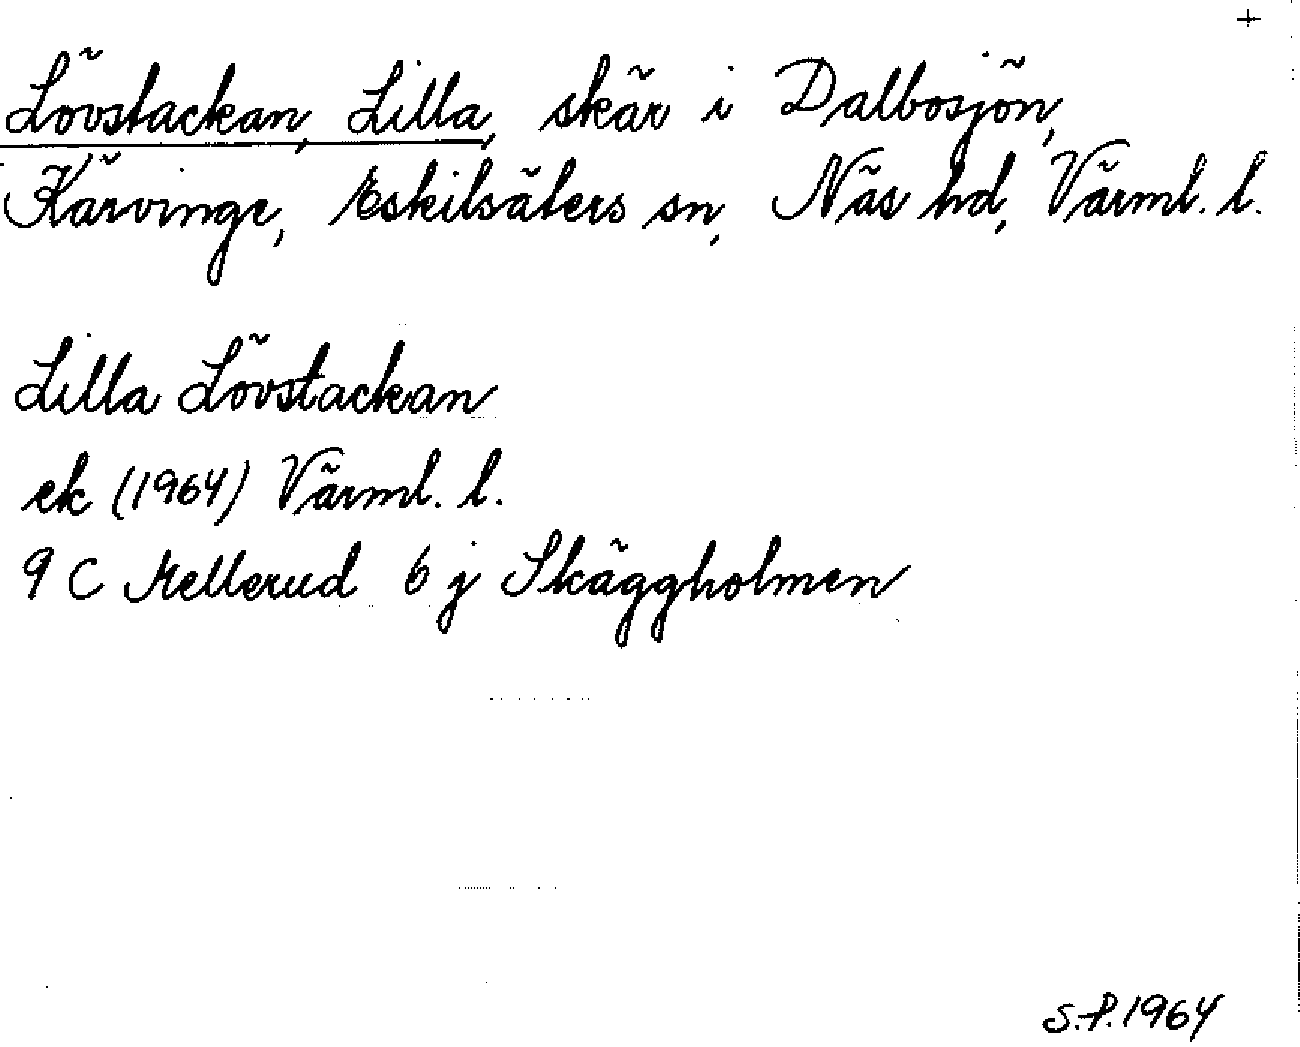 +
Lövstackan, Lilla, skär i Dalbosjön,
Kärvinge, Eskilsäters sn, Näs hd, Värml. l.
Lilla Lövstackan
ek (1964) Värml. l.
9 C Mellerud 6 j Skäggholmen
S.P. 1964